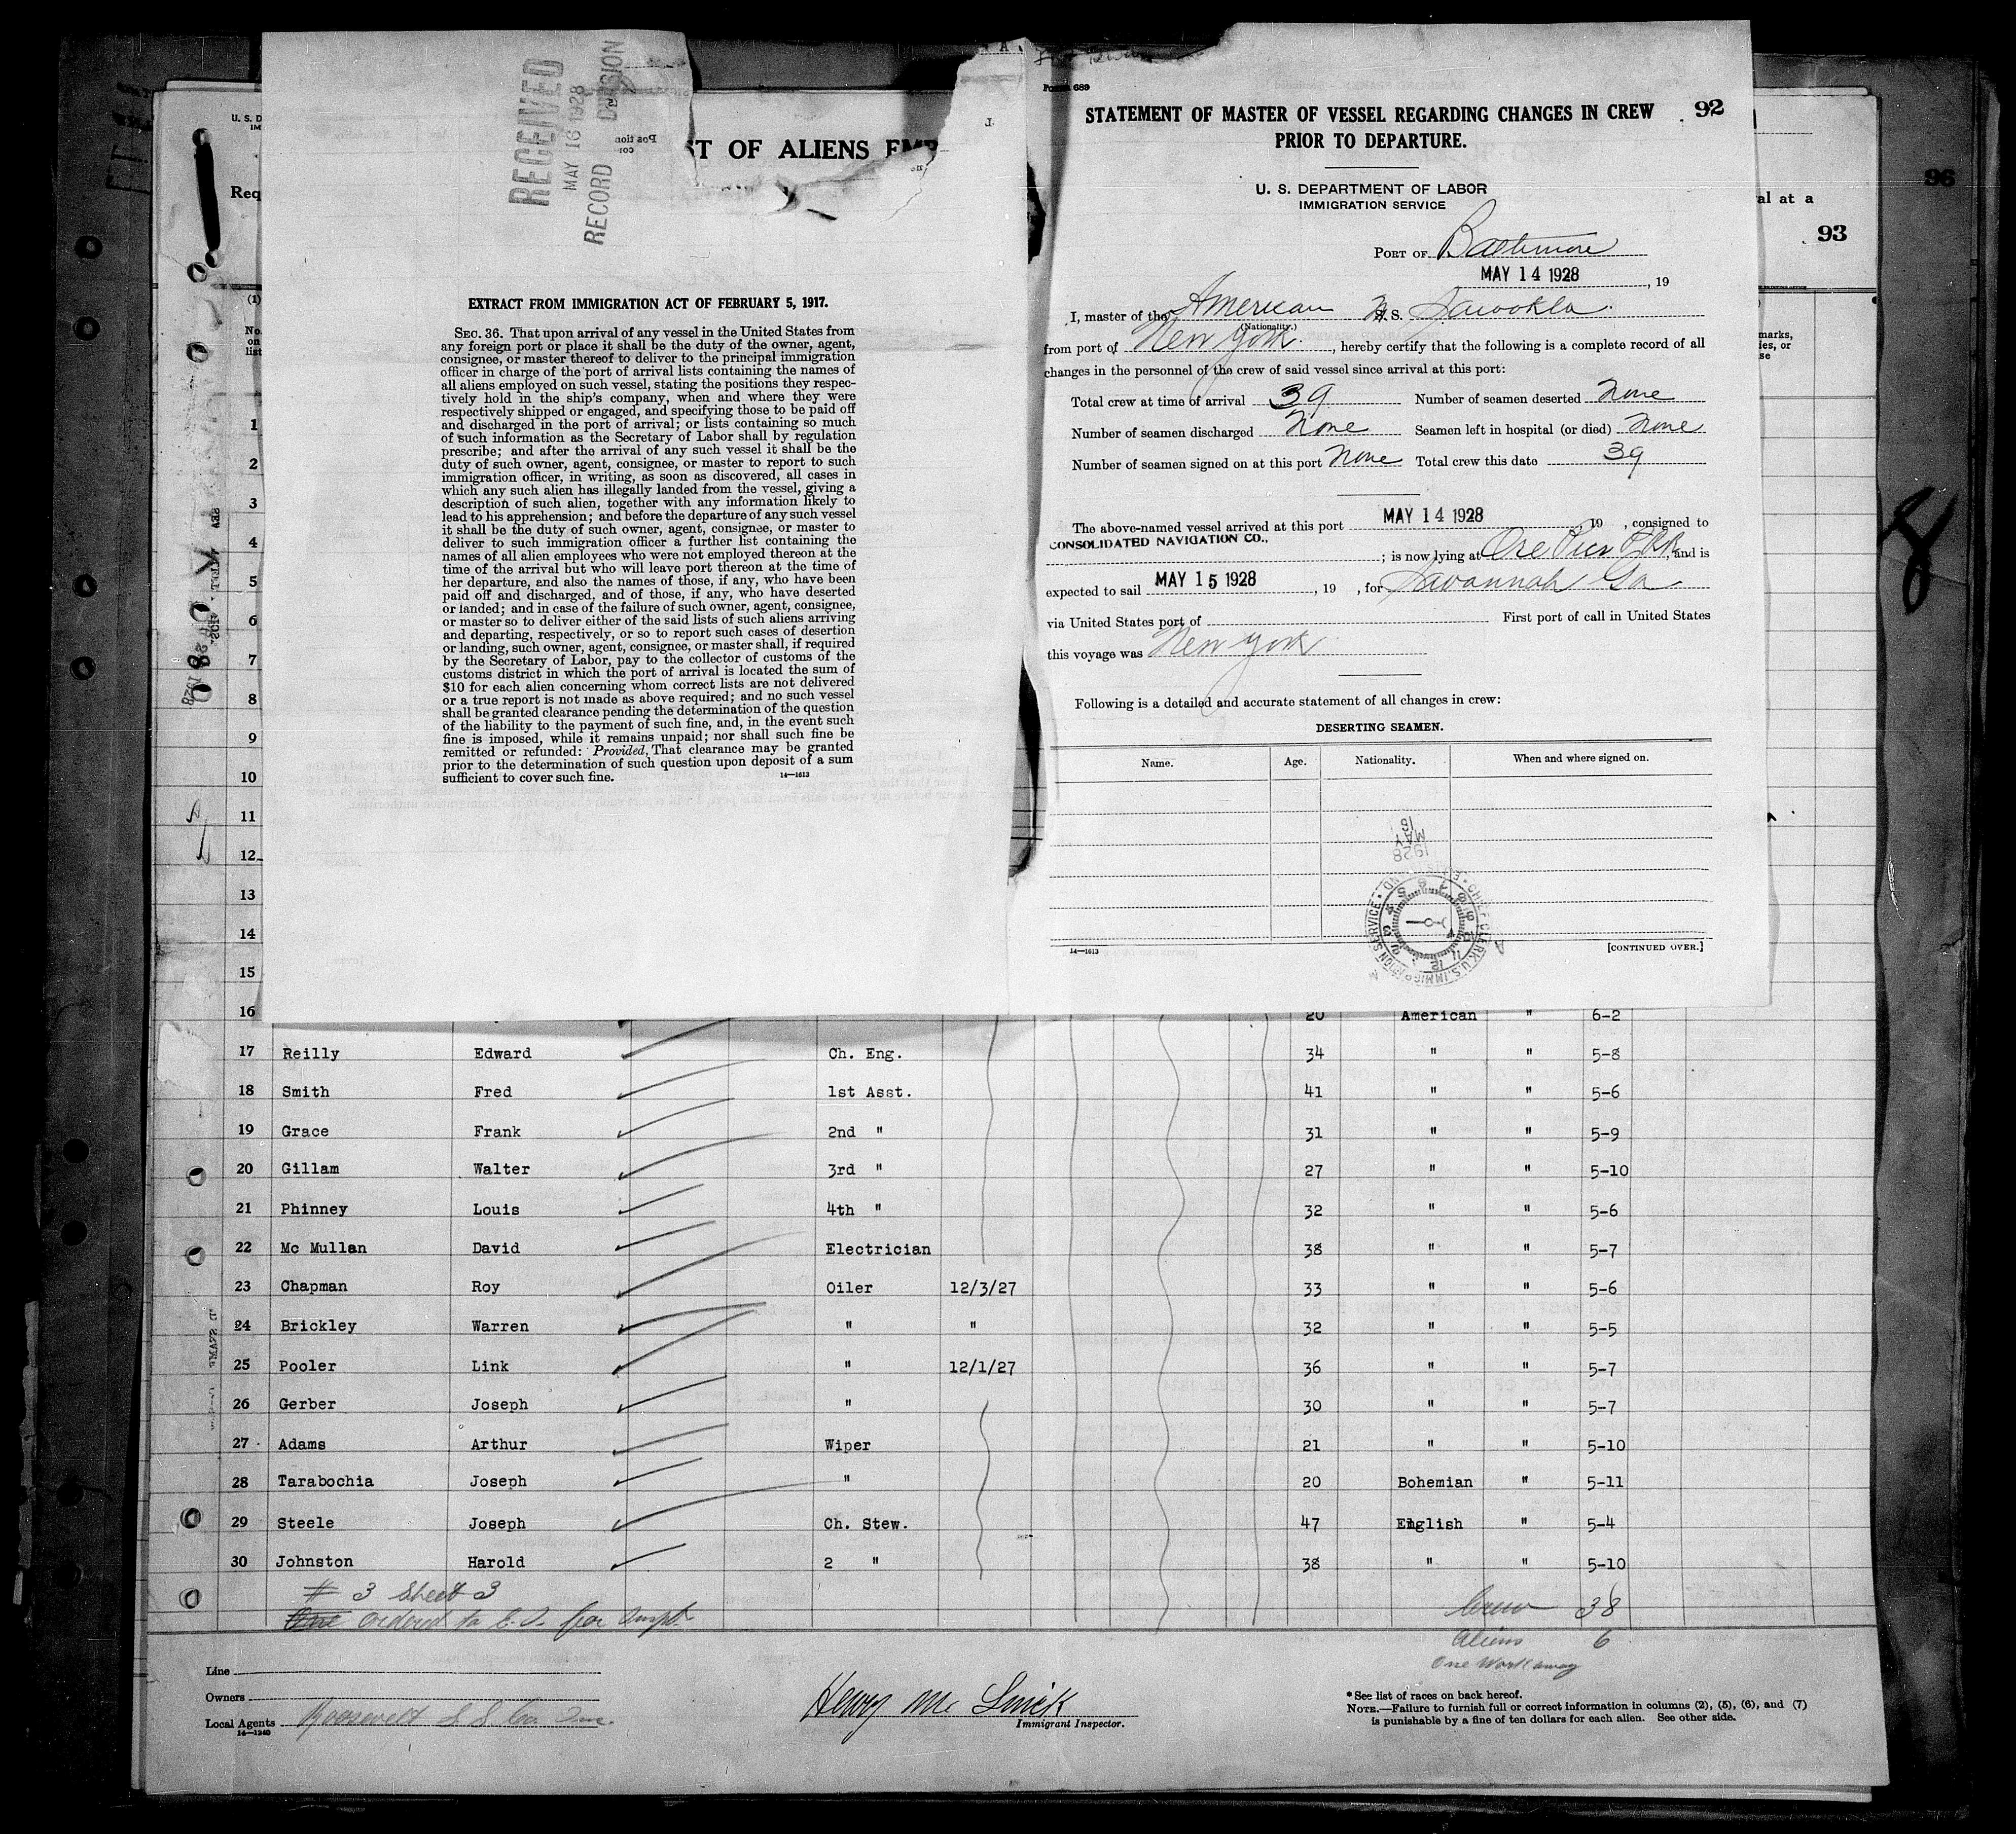 RECEIVED
MAY 16 1928
RECORD DIVISION
ST OF ALIENS EMP
U. S. D
IM
Req
(1)
No.
on
list
EXTRACT FROM IMMIGRATION ACT OF FEBRUARY 5, 1917.
SEC. 36. That upon arrival of any vessel in the United States from
any foreign port or place it shall be the duty of the owner, agent,
consignee, or master thereof to deliver to the principal immigration
officer in charge of the port of arrival lists containing the names of
all aliens employed on such vessel, stating the positions they respec-
tively hold in the ship's company, when and where they were
respectively shipped or engaged, and specifying those to be paid off
and discharged in the port of arrival; or lists containing so much
of such information as the Secretary of Labor shall by regulation
prescribe; and after the arrival of any such vessel it shall be the
duty of such owner, agent, consignee, or master to report to such
immigration officer, in writing, as soon as discovered, all cases in
which any such alien has illegally landed from the vessel, giving a
description of such alien, together with any information likely to
lead to his apprehension; and before the departure of any such vessel
it shall be the duty of such owner, agent, consignee, or master to
deliver to such immigration officer a further list containing the
names of all alien employees who were not employed thereon at the
time of the arrival but who will leave port thereon at the time of
her departure, and also the names of those, if any, who have been
paid off and discharged, and of those, if any, who have deserted
or landed; and in case of the failure of such owner, agent, consignee,
or master so to deliver either of the said lists of such aliens arriving
and departing, respectively, or so to report such cases of desertion
or landing, such owner, agent, consignee, or master shall, if required
by the Secretary of Labor, pay to the collector of customs of the
customs district in which the port of arrival is located the sum of
$10 for each alien concerning whom correct lists are not delivered
or a true report is not made as above required; and no such vessel
shall be granted clearance pending the determination of the question
of the liability to the payment of such fine, and, in the event such
fine is imposed, while it remains unpaid; nor shall such fine be
remitted or refunded: Provided, That clearance may be granted
prior to the determination of such question upon deposit of a sum
sufficient to cover such fine. 14—1613
Form 689
STATEMENT OF MASTER OF VESSEL REGARDING CHANGES IN CREW 92
PRIOR TO DEPARTURE.
U. S. DEPARTMENT OF LABOR
IMMIGRATION SERVICE
PORT OF Baltimore
MAY 14 1928, 19
I, master of the American S. S.
(Nationality.)
from port of New York, hereby certify that the following is a complete record of all
changes in the personnel of the crew of said vessel since arrival at this port:
Total crew at time of arrival 39 Number of seamen deserted None
Number of seamen discharged None Seamen left in hospital (or died) None
Number of seamen signed on at this port None Total crew this date 39
The above-named vessel arrived at this port MAY 14 1928, 19 , consigned to
CONSOLIDATED NAVIGATION CO., ; is now lying at Ore Pier, and is
expected to sail MAY 15 1928, 19 , for Savannah Ga
via United States port of First port of call in United States
this voyage was New York
Following is a detailed and accurate statement of all changes in crew:
DESERTING SEAMEN.
Name. Age. Nationality. When and where signed on.
MAY 16 1928
14—1613 [CONTINUED OVER.]
96
al at a
93
marks,
ies, or
se
1
2
3
4
5
6
7
8
9
10
11
12
13
14
15
16 20 American " 6-2
17 Reilly Edward Ch. Eng. 34 " " 5-8
18 Smith Fred 1st Asst. 41 " " 5-6
19 Grace Frank 2nd " 31 " " 5-9
20 Gillam Walter 3rd " 27 " " 5-10
21 Phinney Louis 4th " 32 " " 5-6
22 Mc Mullan David Electrician 38 " " 5-7
23 Chapman Roy Oiler 12/3/27 33 " " 5-6
24 Brickley Warren " " 32 " " 5-5
25 Pooler Link " 12/1/27 36 " " 5-7
26 Gerber Joseph " 30 " " 5-7
27 Adams Arthur Wiper 21 " " 5-10
28 Tarabochia Joseph " 20 Bohemian " 5-11
29 Steele Joseph Ch. Stew. 47 English " 5-4
30 Johnston Harold 2 " 38 " " 5-10
# 3 Sheet 3
One ordered to E. I. for Inspt.
Crew 38
Aliens 6
One Workaway
Line
Owners
Local Agents Roosevelt S S Co. Inc.
14—1240
Henry Mc
Immigrant Inspector.
* See list of races on back hereof.
NOTE.—Failure to furnish full or correct information in columns (2), (5), (6), and (7)
is punishable by a fine of ten dollars for each alien. See other side.